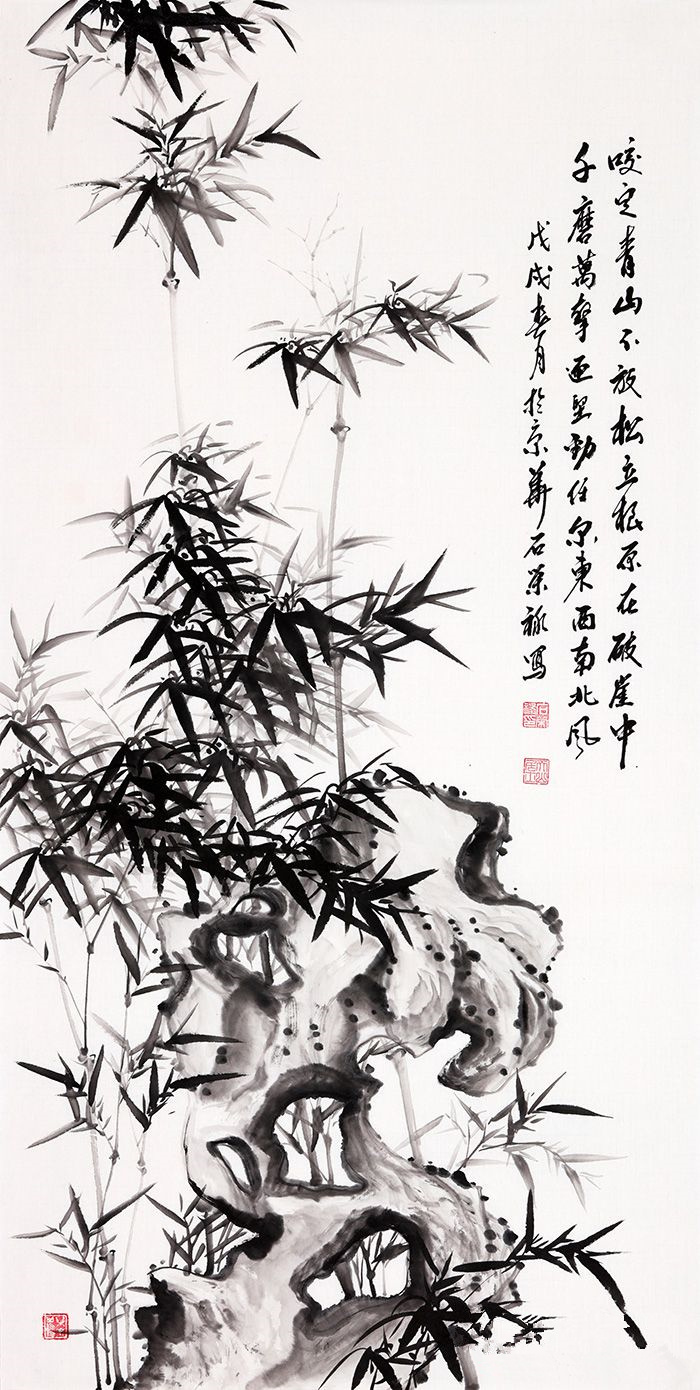 咬定青山不放松立根原在破崖中
千磨萬擊还坚勁任尔東西南北风
戊戌春月於京華石荣禄寫